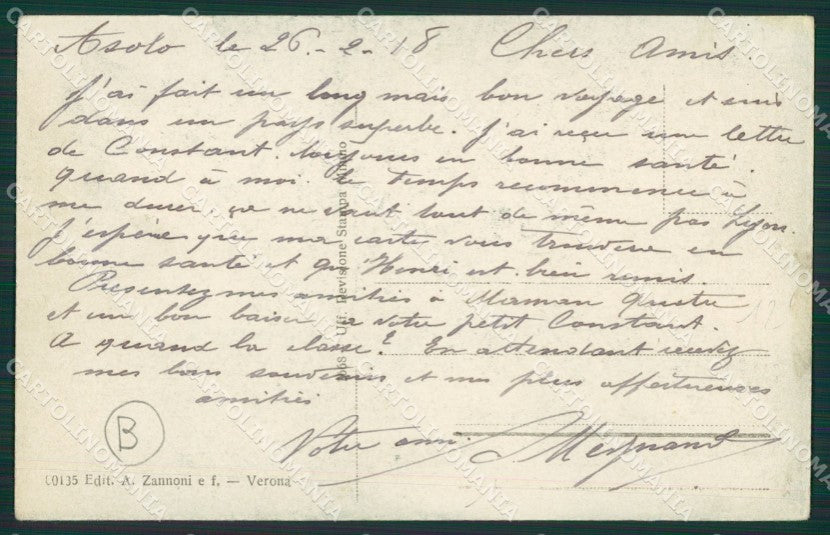 Asolo le 26-2-18 Chers Amis.
J'ai fait un long mais bon voyage et suis
dans un pays superbe. J'ai reçu une lettre
de Constant. toujours en bonne santé.
Quand à moi. le temps recommence à
me durer ça ne vaut tout de même pas Lyon.
J'espère que ma carte vous trouvera en
bonne santé et que Henri est bien remis
Présentez mes amitiés à Maman
et un bon baiser à votre petit Constant.
A quand la classe? En attendant recevez
mes bons souvenirs et mes plus affectueuses
amitiés
Votre ami.
B
60135 Edit. A. Zannoni e f. — Verona
Uff. Revisione Stampa Milano
CARTOLINOMANIA